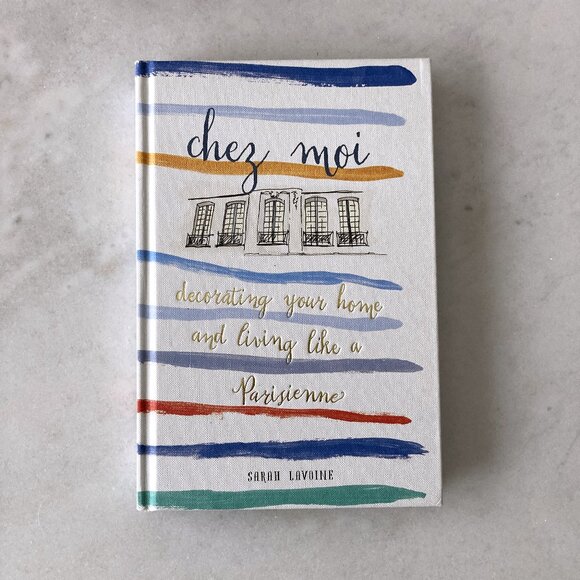 chez moi
decorating your home
and living like a
Parisienne
SARAH LAVOINE